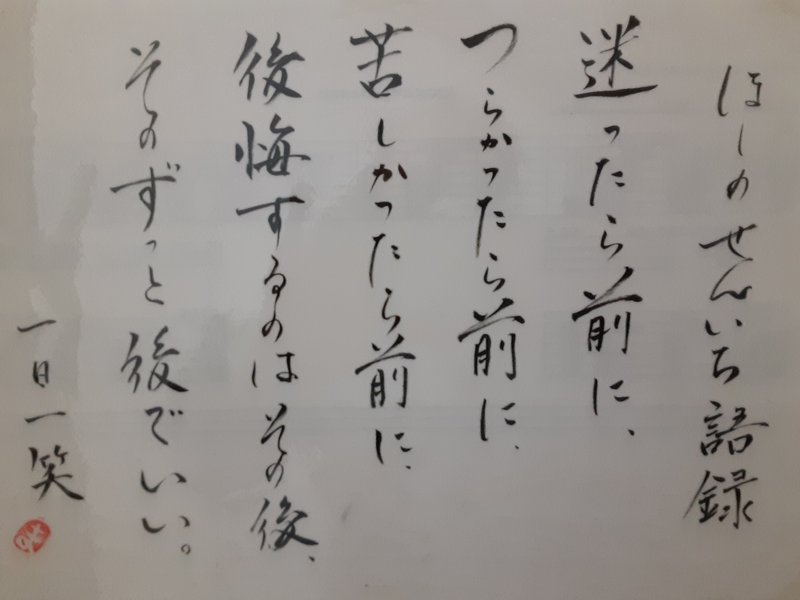 ほしのせんいち語録
迷ったら前に、
つらかったら前に、
苦しかったら前に、
後悔するのはその後、
そのずっと後でいい。
一日一笑